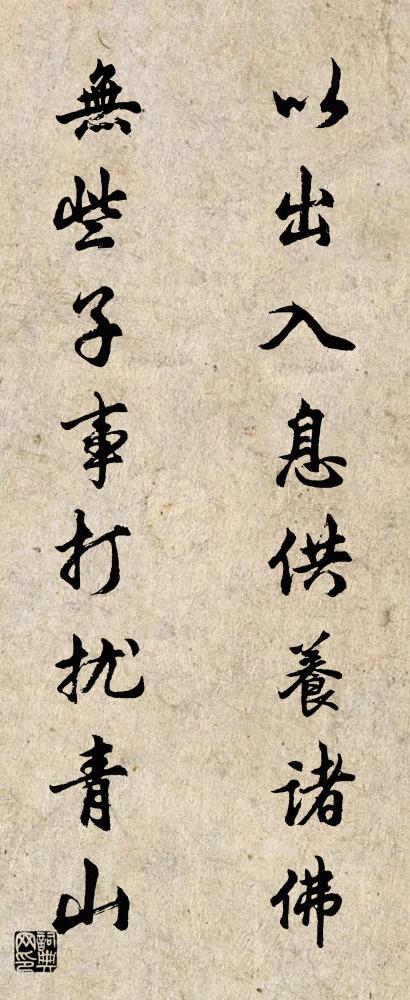 以出入息供養诸佛
無些子事打扰青山
詞典网印